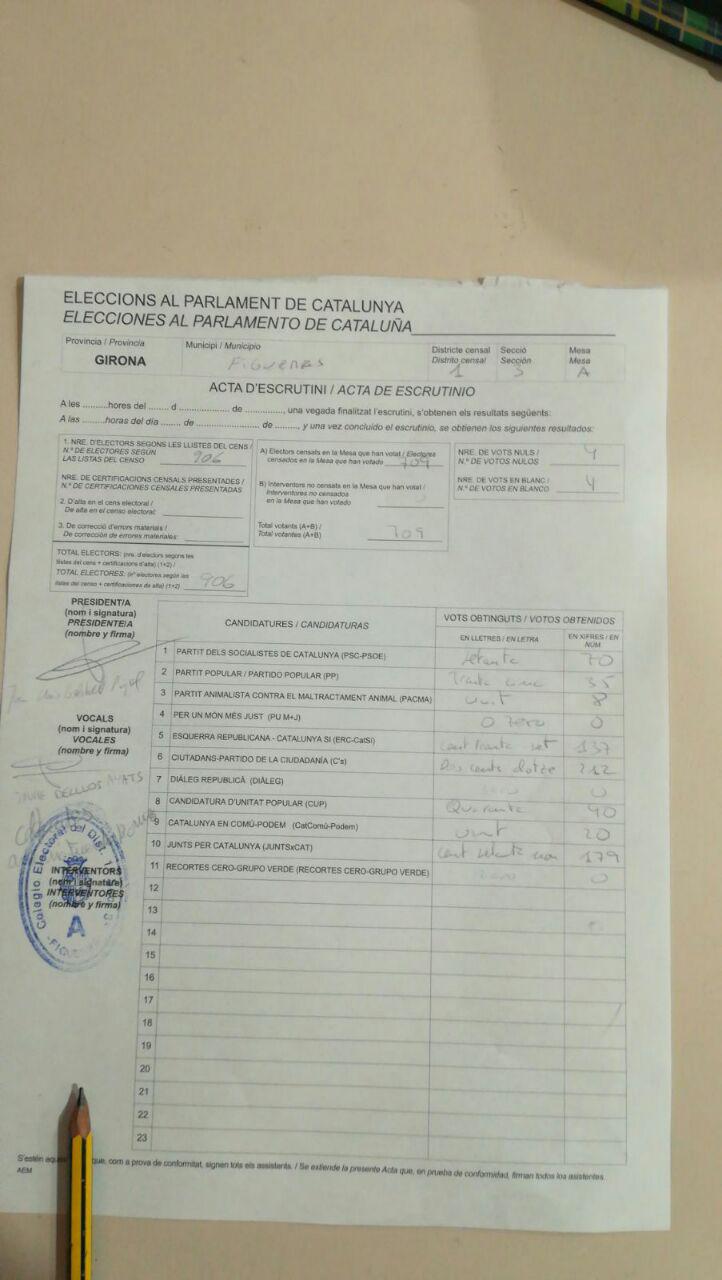 ELECCIONS AL PARLAMENT DE CATALUNYA
ELECCIONES AL PARLAMENTO DE CATALUÑA
Província / Provincia
GIRONA
Municipi / Municipio
FIGUERES
Districte censal
Distrito censal
1
Secció
Sección
3
Mesa
Mesa
A
ACTA D'ESCRUTINI / ACTA DE ESCRUTINIO
A les ..........hores del ....... d .................. de .............., una vegada finalitzat l'escrutini, s'obtenen els resultats següents:
A las .........horas del día ....... de .................... de .......... y una vez concluido el escrutinio, se obtienen los siguientes resultados:
1. NRE. D'ELECTORS SEGONS LES LLISTES DEL CENS /
N.º DE ELECTORES SEGÚN
LAS LISTAS DEL CENSO 906
NRE. DE CERTIFICACIONS CENSALS PRESENTADES /
N.º DE CERTIFICACIONES CENSALES PRESENTADAS
2. D'alta en el cens electoral /
De alta en el censo electoral:
3. De correcció d'errors materials /
De corrección de errores materiales:
TOTAL ELECTORS: (nre. d'electors segons les
llistes del cens + certificacions d'alta) (1+2) /
TOTAL ELECTORES: (nº electores según las
listas del censo + certificaciones de alta) (1+2) 906
A) Electors censats en la Mesa que han votat / Electores
censados en la Mesa que han votado 709
B) Interventors no censats en la Mesa que han votat /
Interventores no censados
en la Mesa que han votado
Total votants (A+B) /
Total votantes (A+B) 709
NRE. DE VOTS NULS /
N.º DE VOTOS NULOS 4
NRE. DE VOTS EN BLANC /
N.º DE VOTOS EN BLANCO 4
PRESIDENT/A
(nom i signatura)
PRESIDENTE/A
(nombre y firma)
VOCALS
(nom i signatura)
VOCALES
(nombre y firma)
JAUME DELLOS AYATS
INTERVENTORS
(nom i signatura)
INTERVENTORES
(nombre y firma)
Colegio Electoral del Dist. 1
A
CANDIDATURES / CANDIDATURAS
VOTS OBTINGUTS / VOTOS OBTENIDOS
EN LLETRES / EN LETRA
EN XIFRES / EN NÚM
1 PARTIT DELS SOCIALISTES DE CATALUNYA (PSC-PSOE) setanta 70
2 PARTIT POPULAR / PARTIDO POPULAR (PP) Trenta cinc 35
3 PARTIT ANIMALISTA CONTRA EL MALTRACTAMENT ANIMAL (PACMA) vuit 8
4 PER UN MÓN MÉS JUST (PU M+J) 0 zero 0
5 ESQUERRA REPUBLICANA - CATALUNYA SÍ (ERC-CatSí) cent trenta set 137
6 CIUTADANS-PARTIDO DE LA CIUDADANÍA (C's) Dos cents dotze 212
7 DIÀLEG REPUBLICÀ (DIÀLEG) zero 0
8 CANDIDATURA D'UNITAT POPULAR (CUP) Quaranta 40
9 CATALUNYA EN COMÚ-PODEM (CatComú-Podem) vint 20
10 JUNTS PER CATALUNYA (JUNTSxCAT) cent setanta nou 179
11 RECORTES CERO-GRUPO VERDE (RECORTES CERO-GRUPO VERDE) zero 0
12
13
14
15
16
17
18
19
20
21
22
23
S'estén que, com a prova de conformitat, signen tots els assistents. / Se extiende la presente Acta que, en prueba de conformidad, firman todos los asistentes.
AEM